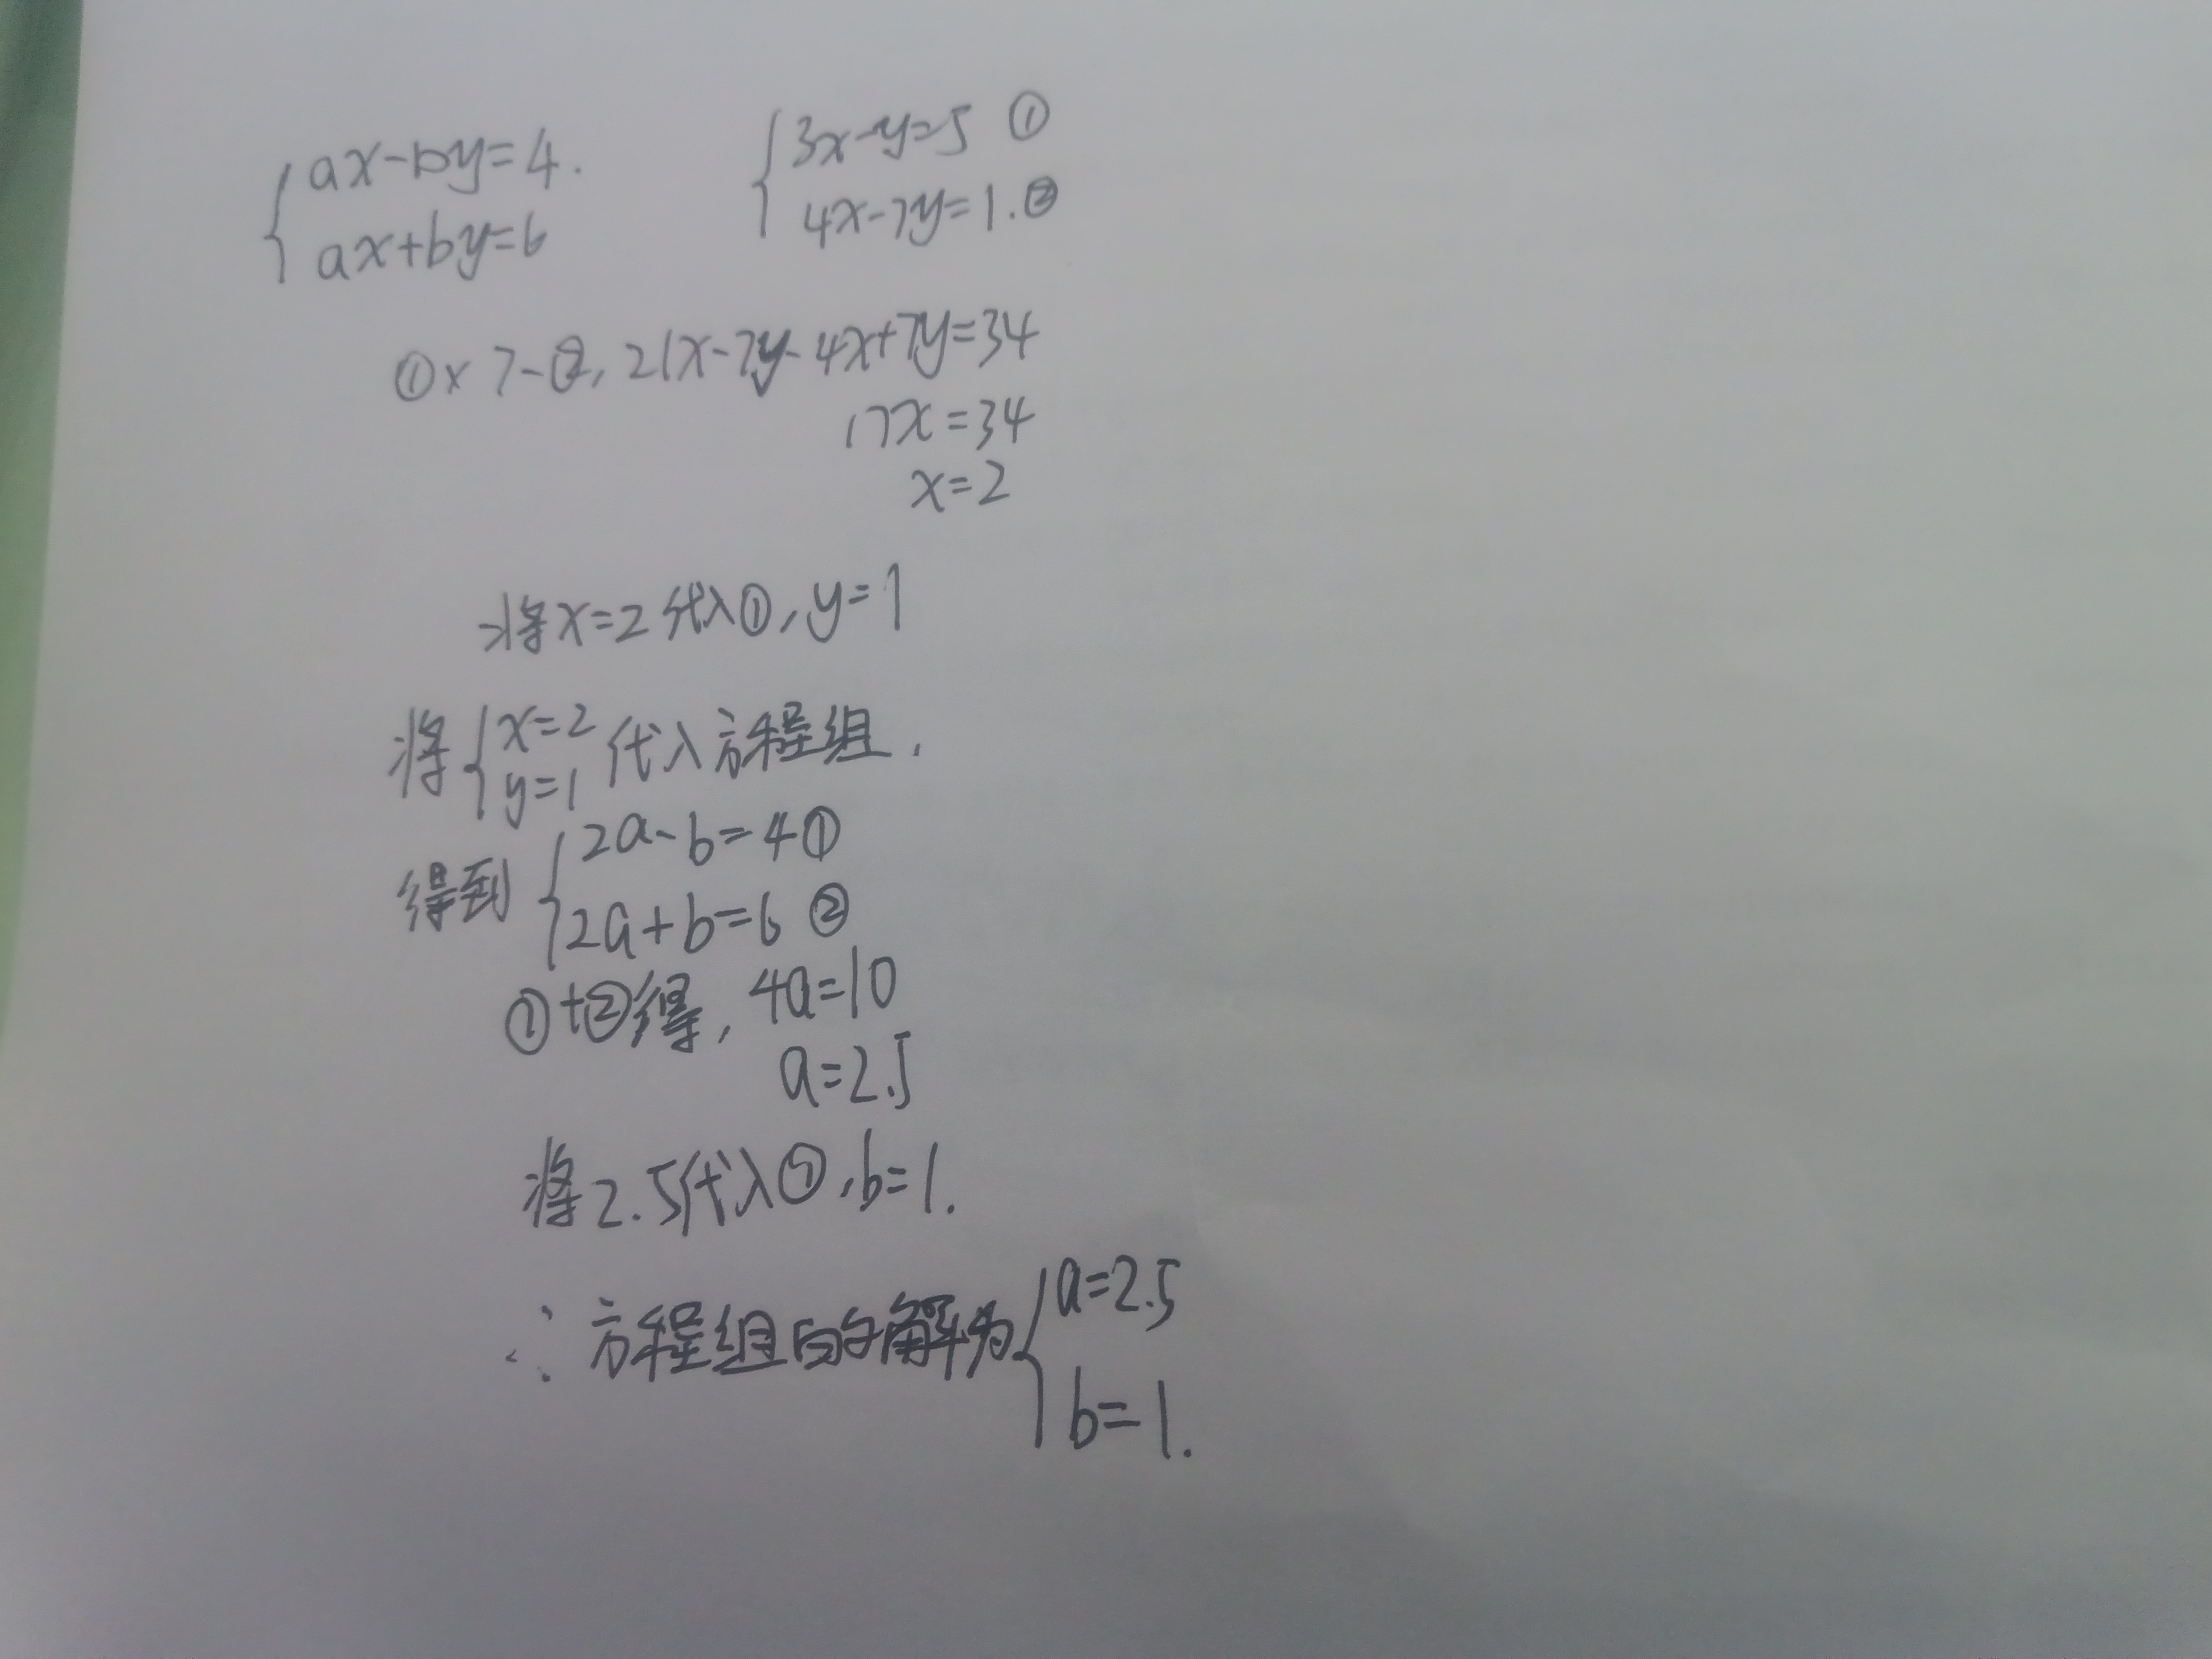 ax-by=4.
ax+by=6
3x-y=5 ①
4x-7y=1.②
①×7-②, 21x-7y-4x+7y=34
17x=34
x=2
将x=2代入①,y=1
将{x=2
y=1 代入方程组,
得到{2a-b=4①
2a+b=6 ②
①+②得, 4a=10
a=2.5
将2.5代入①,b=1.
∴方程组的解为{a=2.5
b=1.